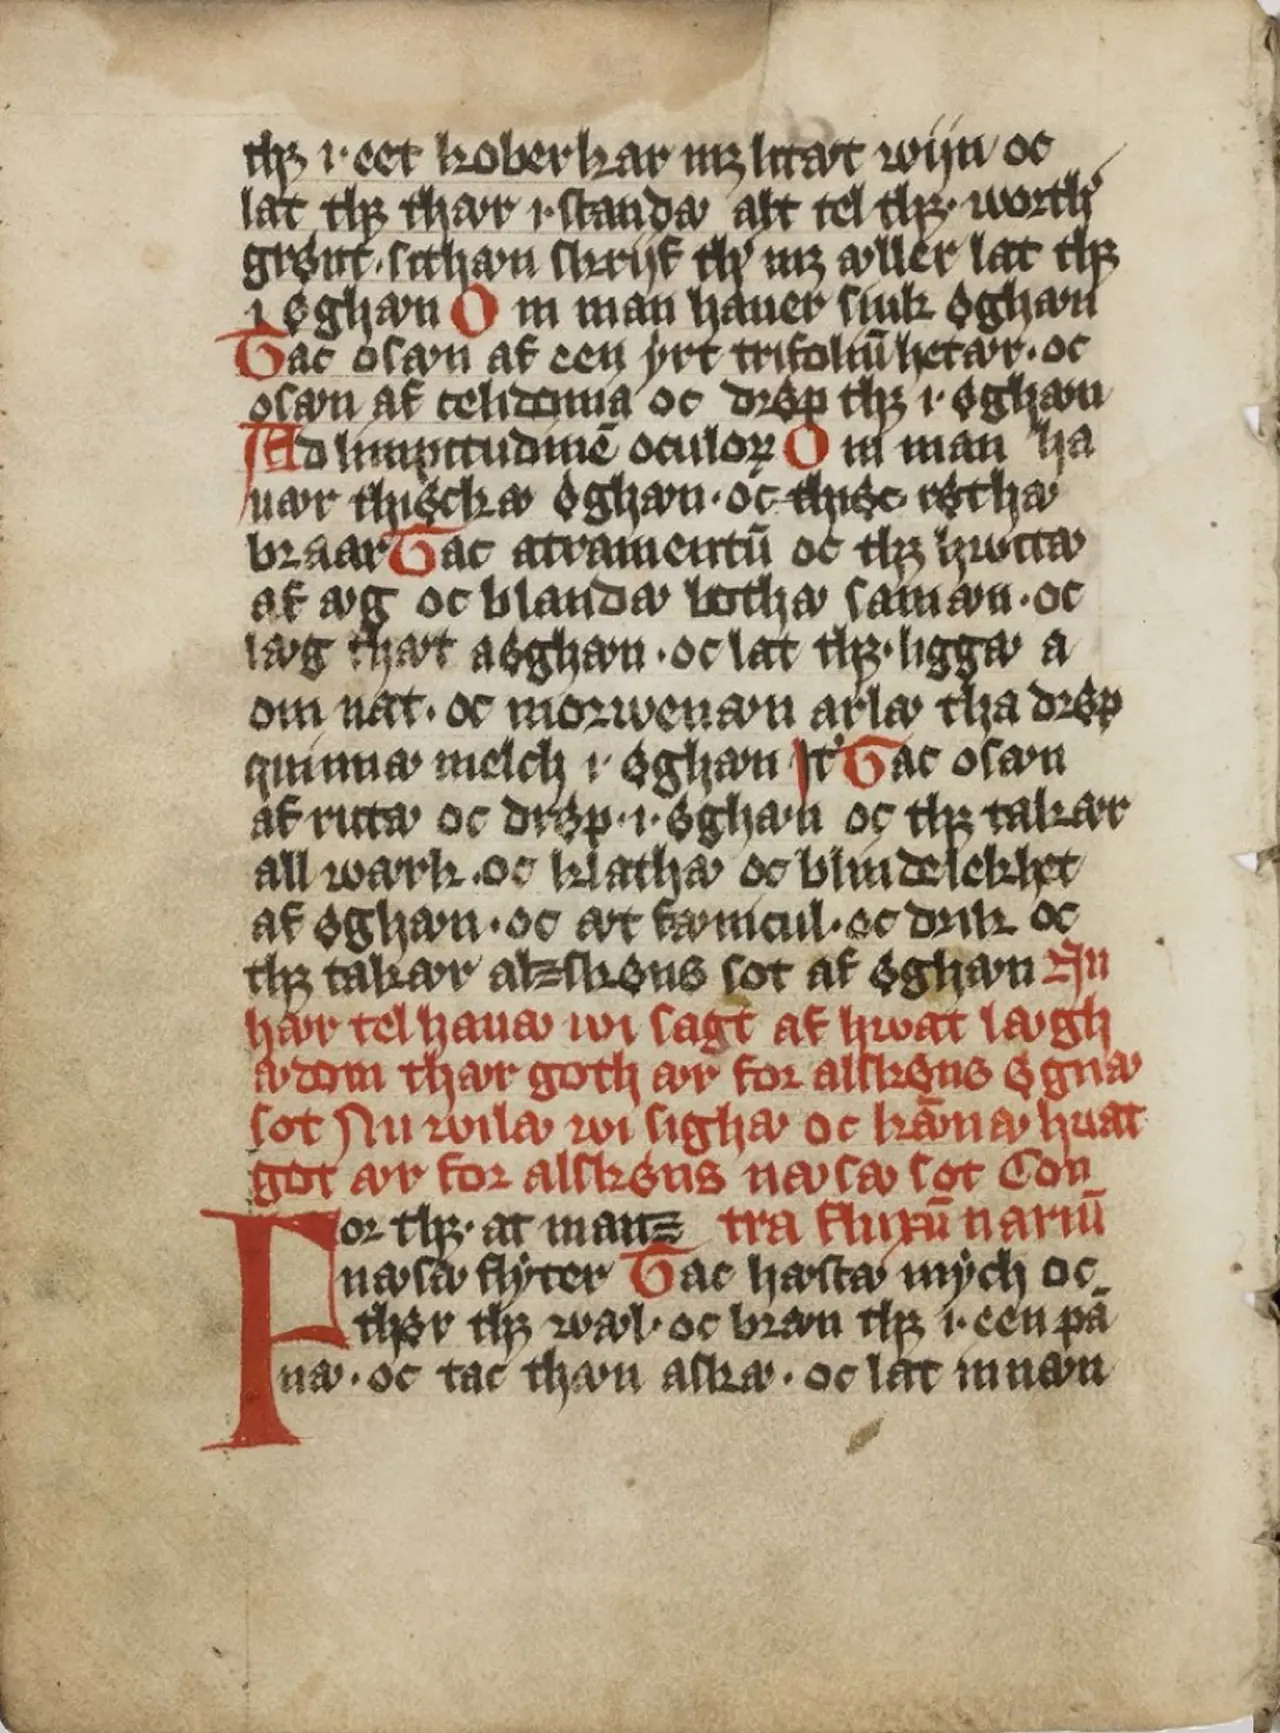 thꝫ i· eet koberkar mꝫ litæt wijn oc
lat thꝫ thær i· standæ alt tel thꝫ· worth͛
grønt· sithæn skrijf th͛ mꝫ æller lat thꝫ
i øghæn Om man hauer siuk øghæn
Tac osæn af een yrt trifoliū hetær· oc
osæn af celidonia oc drøp thꝫ i· øghæn
Ad limpitudinē oculoꝝ Om man ha
uær thiøckæ øghæn· oc thiøc røthæ
braar Tac atramentū oc thꝫ hwitæ
af æg oc blandæ bothæ samæn· oc
læg thæt a øghæn· oc lat thꝫ· liggæ a
om nat· oc morwenæn arlæ tha drøp
quinnæ melch i· øghæn It͛ Tac osæn
af rutæ oc drøp· i· øghæn oc thꝫ takær
all wærk· oc klathæ oc blindelekhet
af øghæn· oc æt fænicul· oc drik oc
thꝫ takær al=skøns sot af øghæn In
hær tel hauæ wi sagt af hwat lægh
ædom thær goth ær for alskøns øgnæ
sot Nu wilæ wi sighæ oc kǣnæ huat
got ær for alskøns næsæ sot Con
For thꝫ· at man= tra fluxū nariū
næsæ flyter Tac hæstæ mych oc
thør thꝫ wæl· oc bræn thꝫ i· een pā
næ· oc tac thæn askæ· oc lat innæn